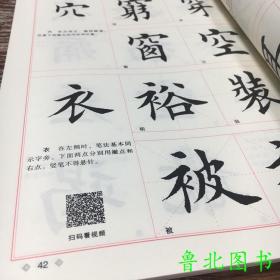 穴 窮 穿
窗 空
衣 裕 裝
裕
衣 在左侧时，笔法基本同
示字旁，下面两点分别用撇点和
右点，竖笔不得悬针。
被
被
扫码看视频
42
鲁北图书